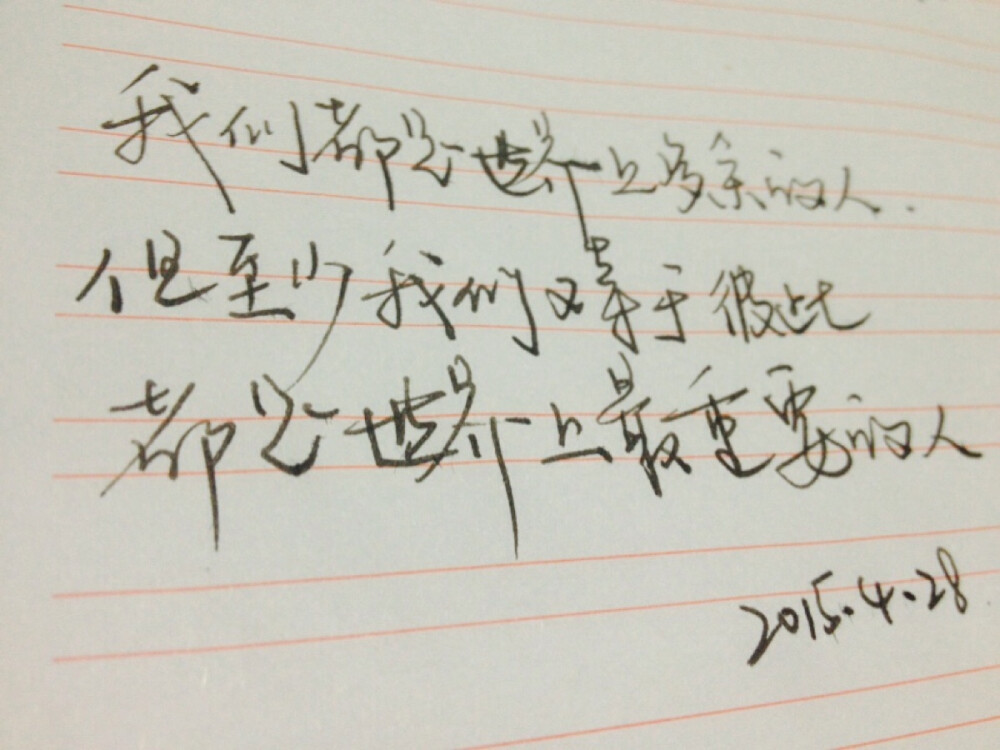 我们都是世界上多余的人.
但至少我们对于彼此
都是世界上最重要的人
2015.4.28